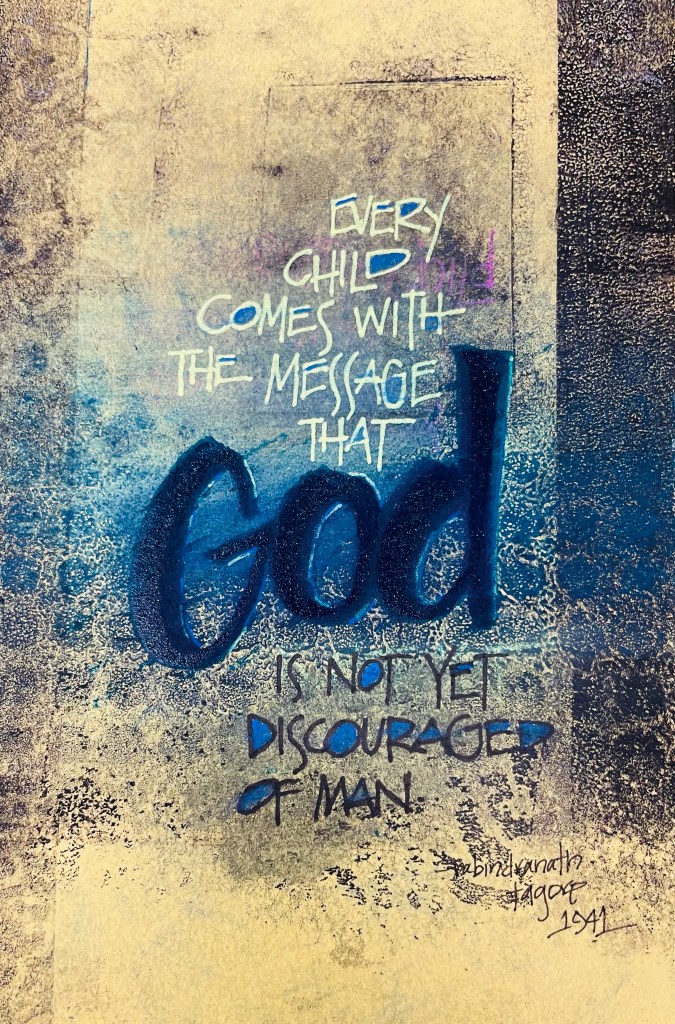 EVERY
CHILD
COMES WITH
THE MESSAGE
THAT
God
IS NOT YET
DISCOURAGED
OF MAN.
rabindranath
tagore
1941